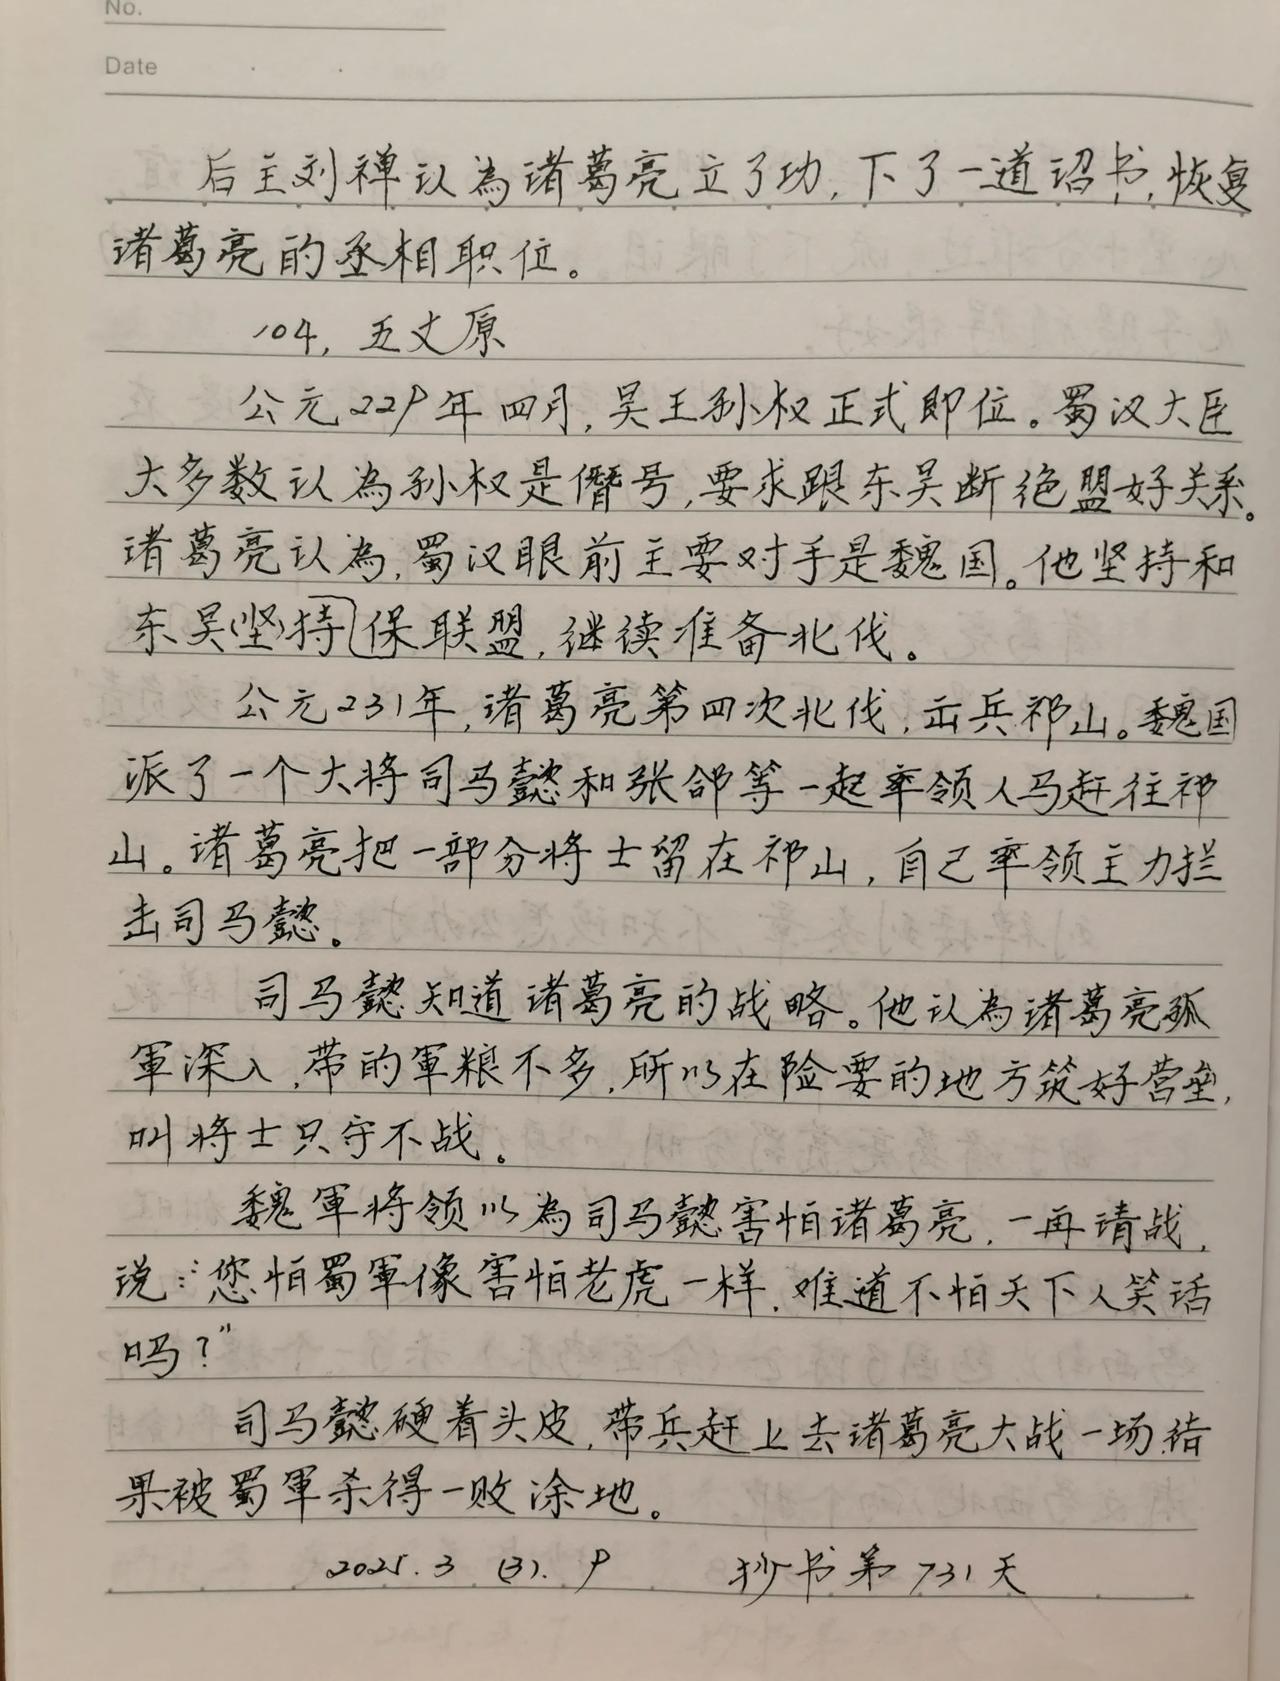 No.
Date
后主刘禅认為诸葛亮立了功,下了一道诏书,恢复
诸葛亮的丞相职位。
104,五丈原
公元229年四月,吴王孙权正式即位。蜀汉大臣
大多数认為孙权是僭号,要求跟东吴断绝盟好关系。
诸葛亮认為,蜀汉眼前主要对手是魏国。他坚持和
东吴(坚)持保联盟,继续准备北伐。
公元231年,诸葛亮第四次北伐,出兵祁山。魏国
派了一个大将司马懿和张郃等一起率领人马赶往祁
山。诸葛亮把一部分将士留在祁山,自己率领主力拦
击司马懿。
司马懿知道诸葛亮的战略。他认為诸葛亮孤
軍深入,带的軍粮不多,所以在险要的地方筑好营垒,
叫将士只守不战。
魏軍将领以為司马懿害怕诸葛亮,一再请战,
说:“您怕蜀軍像害怕老虎一样,难道不怕天下人笑话
吗?”
司马懿硬着头皮,带兵赶上去诸葛亮大战一场,结
果被蜀軍杀得一败涂地。
2025.3(3).9 抄书第731天